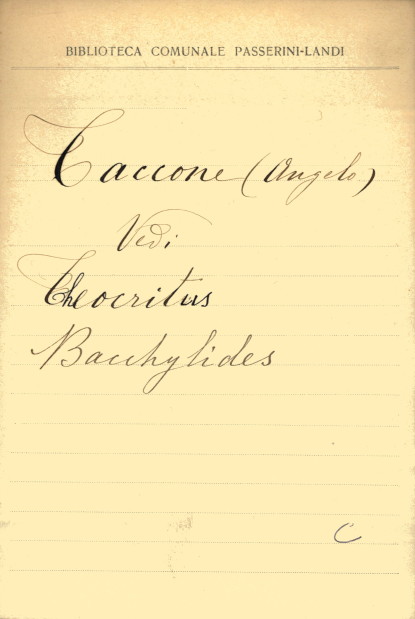 BIBLIOTECA COMUNALE PASSERINI-LANDI
Taccone (Angelo)
Vedi
Theocritus
Bacchylides
C